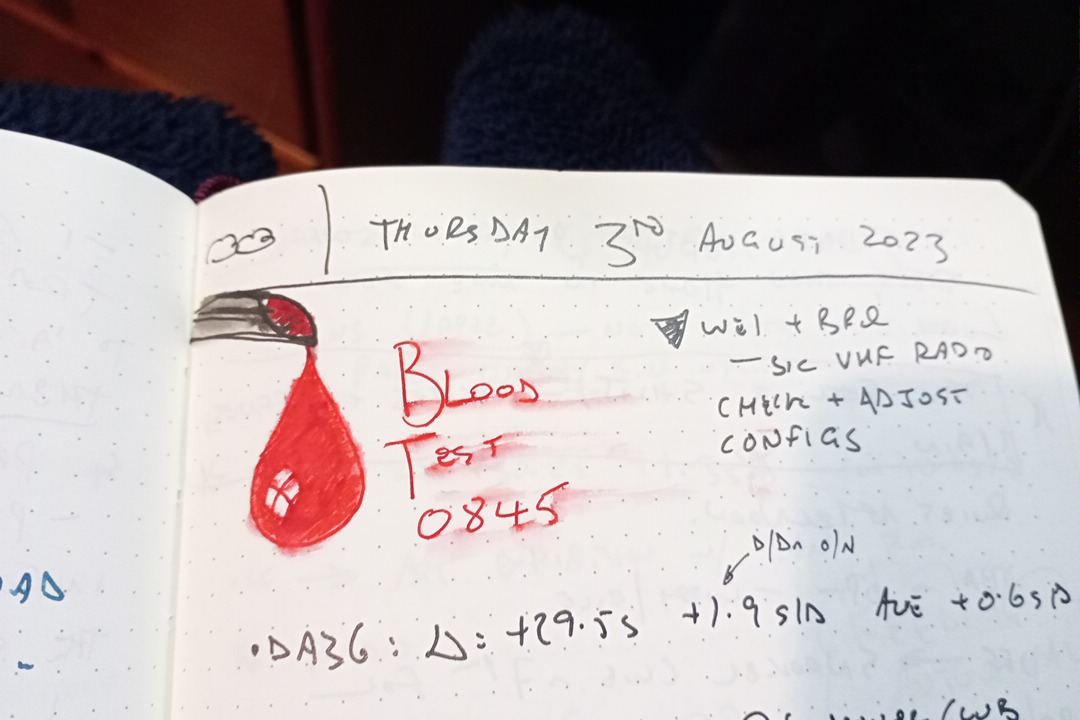 THURSDAY 3RD AUGUST 2023
BLOOD
TEST
0845
+ BRL
VHF RADIO
CHECK + ADJUST
CONFIGS
O/N
•DA36: Δ: +29.5s +1.9 s/D AVE +0.6 s/D
AD
-